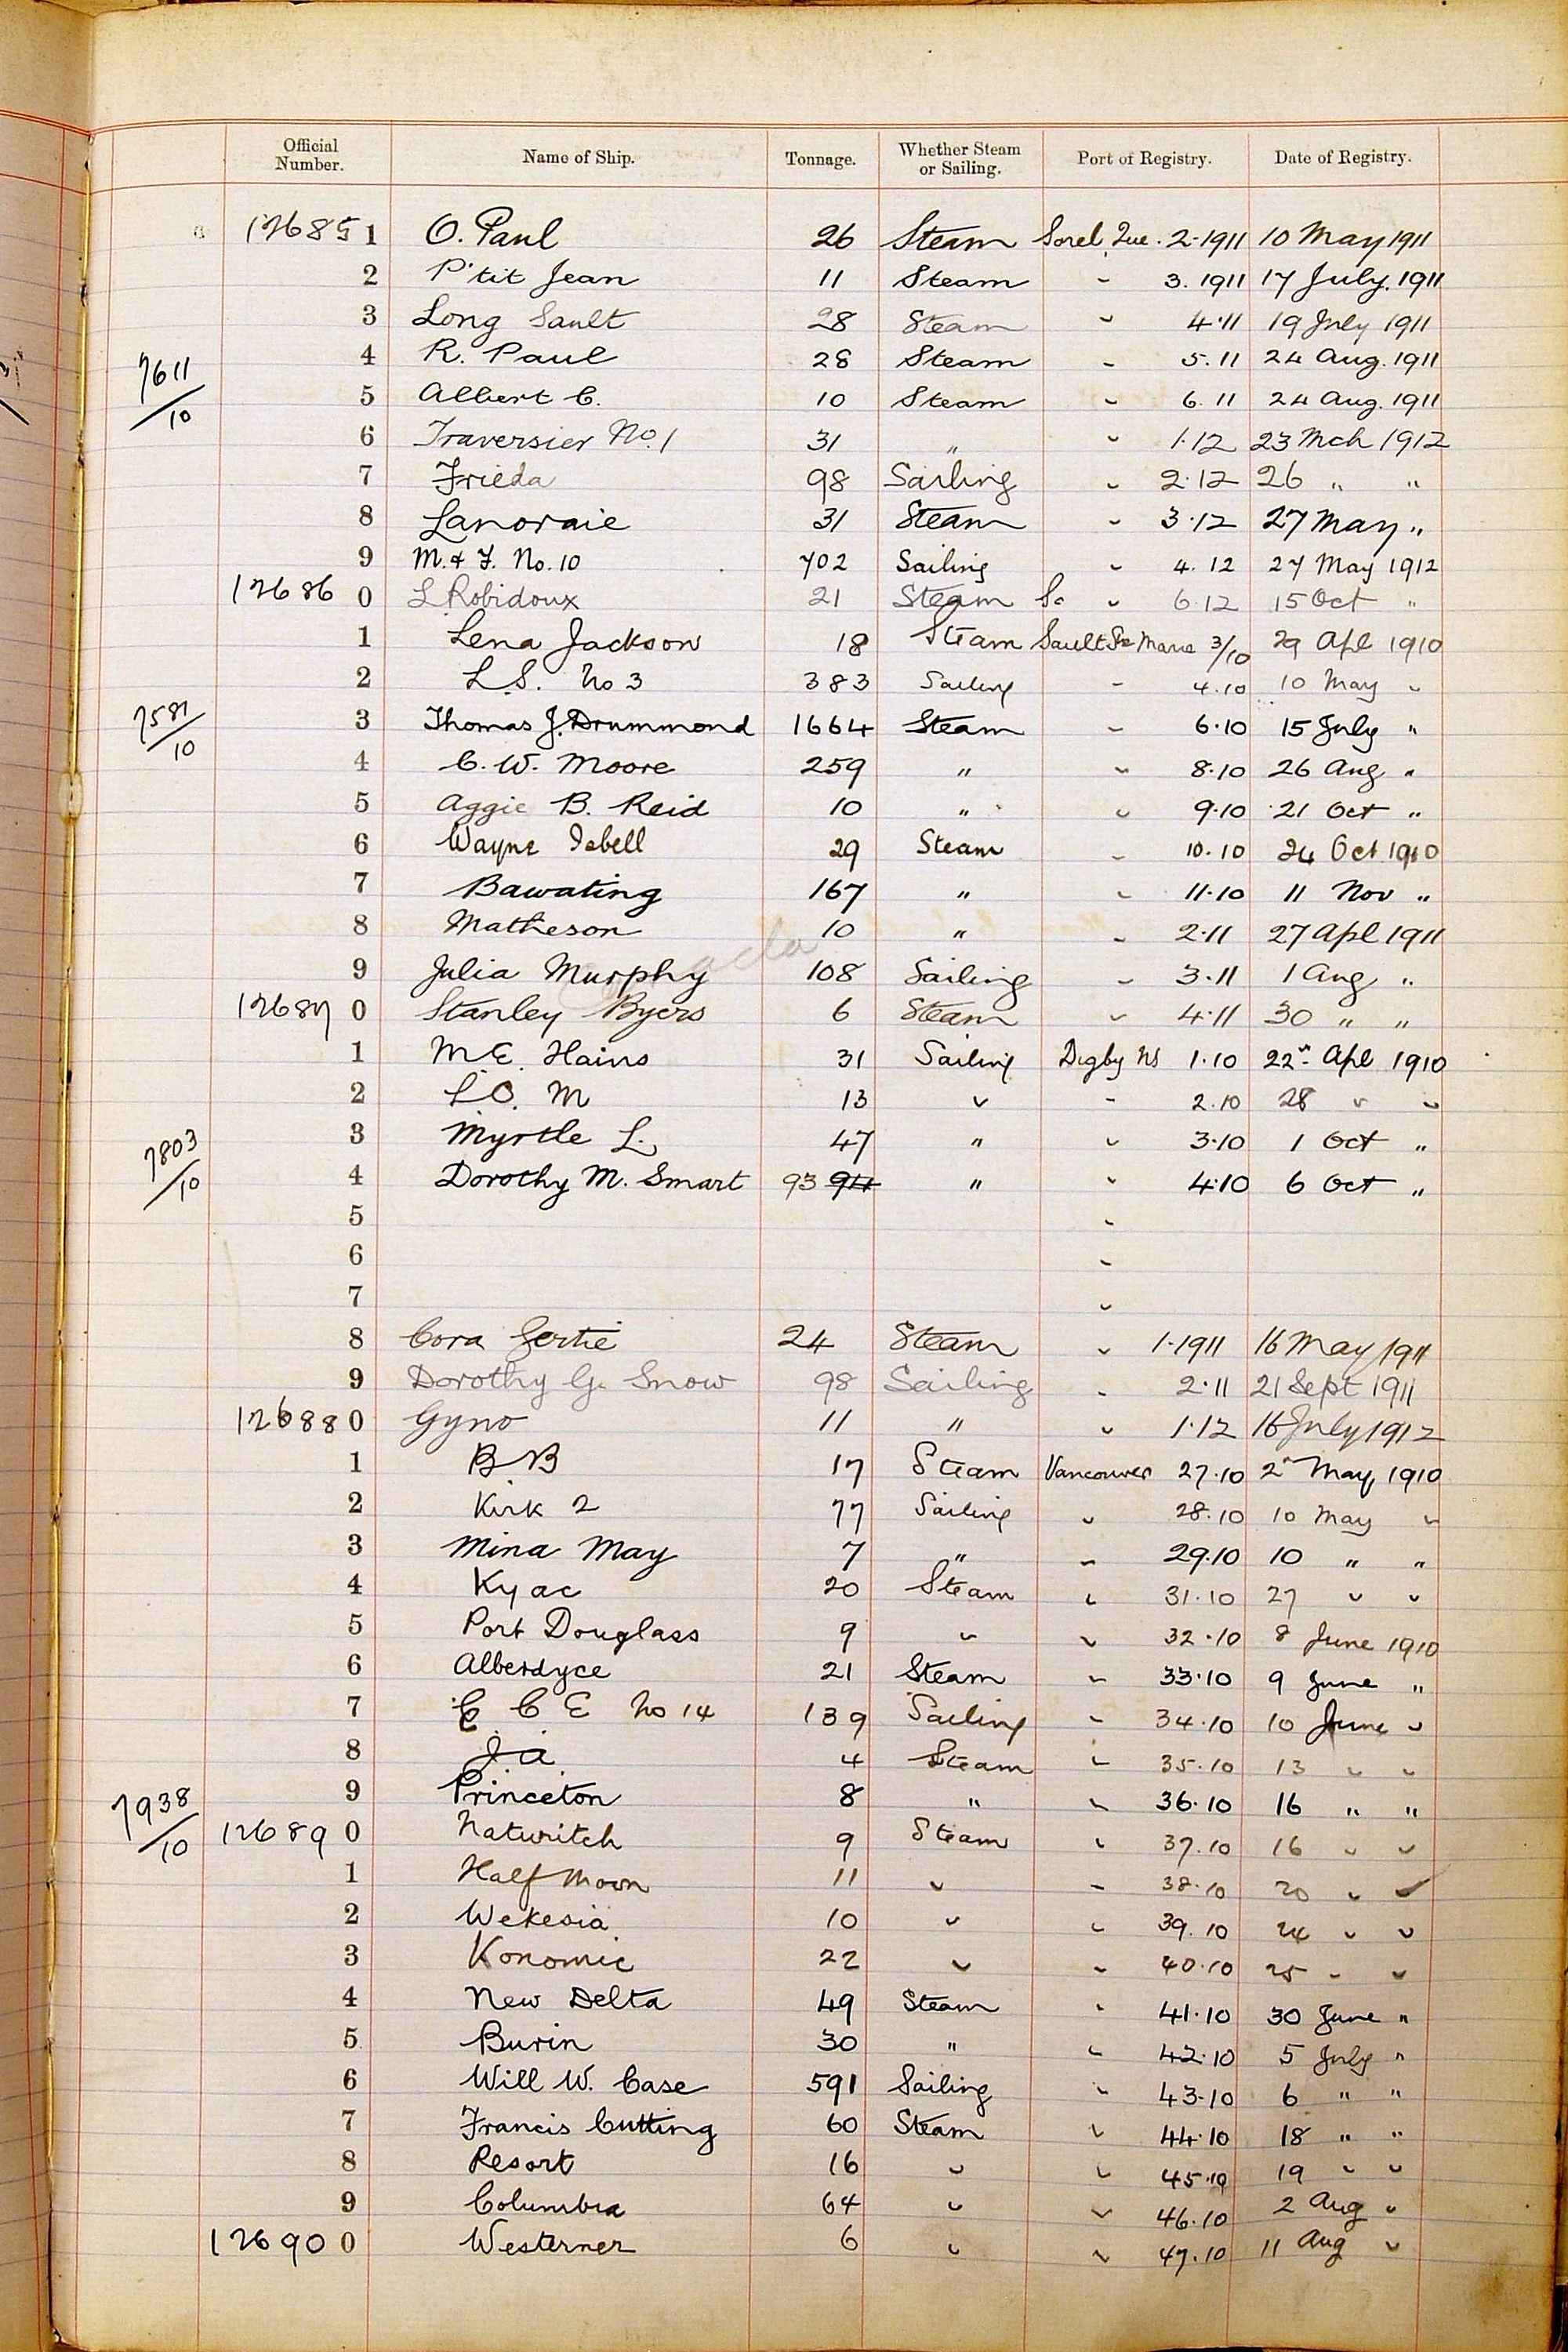 Official Number. Name of Ship. Tonnage. Whether Steam or Sailing. Port of Registry. Date of Registry.
126851 O. Paul 26 Steam Sorel, Que. 2.1911 10 May 1911
2 P'tit Jean 11 Steam " 3.1911 17 July. 1911
3 Long Sault 28 Steam " 4.11 19 July 1911
7611/10 4 R. Paul 28 Steam " 5.11 24 Aug. 1911
5 Albert C. 10 Steam " 6.11 24 Aug. 1911
6 Traversier No. 1 31 " " 1.12 23 Mch 1912
7 Frieda 98 Sailing " 2.12 26 " "
8 Lanoraie 31 Steam " 3.12 27 May "
9 M. & F. No. 10 702 Sailing " 4.12 27 May 1912
126860 L Robidoux 21 Steam So " 6.12 15 Oct "
1 Lena Jackson 18 Steam Sault Ste Marie 3/10 29 Apl 1910
2 L.S. No 3 383 Sailing " 4.10 10 May "
7581/10 3 Thomas J. Drummond 1664 Steam " 6.10 15 July "
4 C. W. Moore 259 " " 8.10 26 Aug "
5 Aggie B. Reid 10 " " 9.10 21 Oct "
6 Wayne Isbell 29 Steam " 10.10 24 Oct 1910
7 Bawating 167 " " 11.10 11 Nov "
8 Matheson 10 " " 2.11 27 Apl 1911
9 Julia Murphy 108 Sailing " 3.11 1 Aug "
126870 Stanley Byers 6 Steam " 4.11 30 " "
1 M.E. Hains 31 Sailing Digby NS 1.10 22" Apl 1910
2 L.O. M 13 " " 2.10 28 " "
7803/10 3 Myrtle L. 47 " " 3.10 1 Oct "
4 Dorothy M. Smart 93 94 " " 4.10 6 Oct "
5 "
6 "
7 "
8 Cora Gertie 24 Steam " 1.1911 16 May 1911
9 Dorothy G. Snow 98 Sailing " 2.11 21 Sept 1911
126880 Gyno 11 " " 1.12 16 July 1912
1 B B 17 Steam Vancouver 27.10 2" May 1910
2 Kirk 2 77 Sailing " 28.10 10 May "
3 Mina May 7 " " 29.10 10 " "
4 Kyac 20 Steam " 31.10 27 " "
5 Port Douglass 9 " " 32.10 8 June 1910
6 Alberdyce 21 Steam " 33.10 9 June "
7 C C E No 14 139 Sailing " 34.10 10 June "
8 J. A. 4 Steam " 35.10 13 " "
7938/10 9 Princeton 8 " " 36.10 16 " "
126890 Naturitch 9 Steam " 37.10 16 " "
1 Half Moon 11 " " 38.10 20 " "
2 Wekesia 10 " " 39.10 24 " "
3 Konomic 22 " " 40.10 25 " "
4 New Delta 49 Steam " 41.10 30 June "
5 Burin 30 " " 42.10 5 July "
6 Will W. Case 591 Sailing " 43.10 6 " "
7 Francis Cutting 60 Steam " 44.10 18 " "
8 Resort 16 " " 45.10 19 " "
9 Columbia 64 " " 46.10 2 Aug "
126900 Westerner 6 " " 47.10 11 Aug "